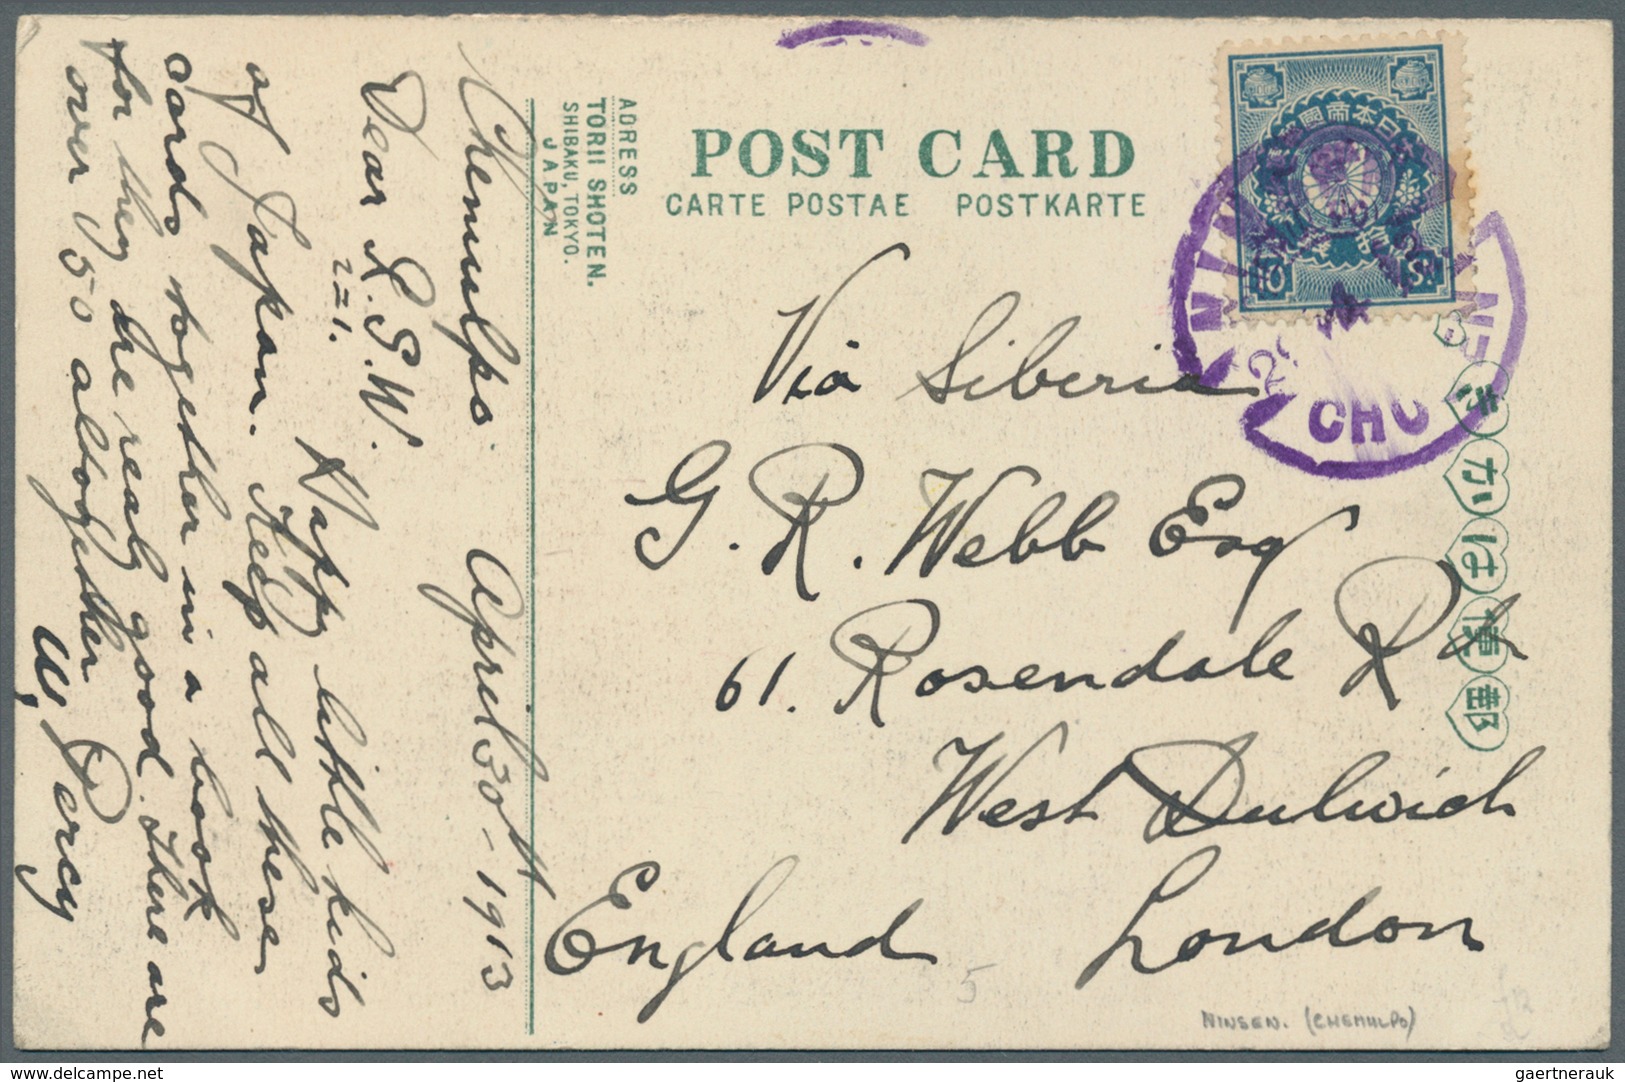 POST CARD
CARTE POSTAE POSTKARTE
ADRESS
TORII SHOTEN.
SHIBAKU, TOKYO.
JAPAN
大日本帝國郵便
10 Sn.
CHO
きかは便郵
Chemulpo. April 30th - 1913
Dear L.G.W.
221.
Happy little kids
of Japan. Keep all these
cards together in a book
for they are realy good. There are
over 150 altogether
W. Percy
Via Siberia
G. R. Webb Esq
61. Rosendale Rd
West Dulwich
London
England
5
NINSEN. (CHEMULPO)
delcampe.net
gaertnerauk